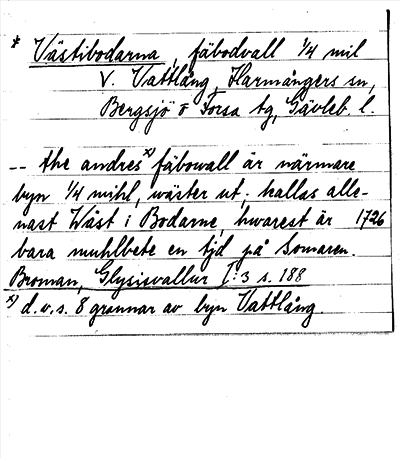 * Västibodarna, fäbodvall 1/4 mil
V. Vattlång, Harmångers sn,
Bergsjö o Forsa tg, Gävleb. l.
-- the andres x) fäbowall är närmare
byn 1/4 mihl, wäster ut; kallas alle-
nast Wäst i Bodarne, hwarest är 1726
bara muhlbete en tjd på Somaren.
Broman, Glysisvallur I:3 s. 188
x) d.v.s. 8 grannar av byn Vattlång.